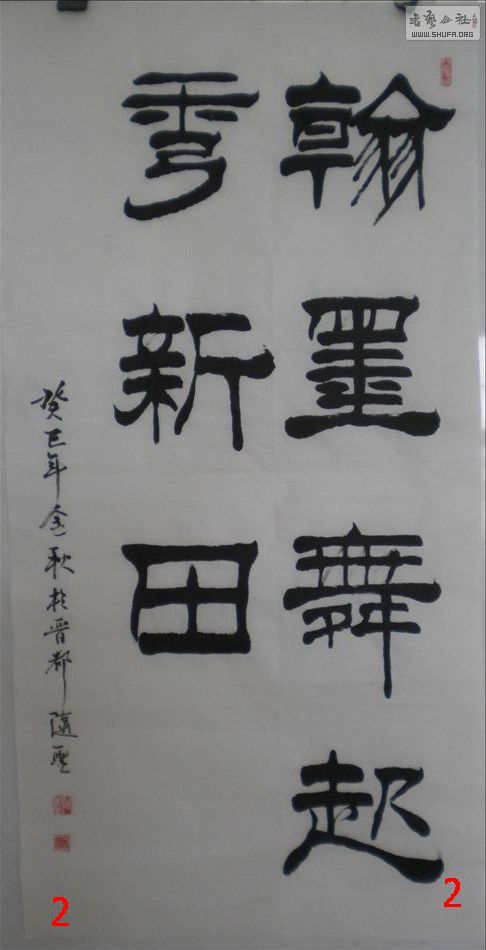 書藝公社
WWW.SHUFA.ORG
翰墨舞起
秀新田
癸巳年金秋於晋都隨
2
2